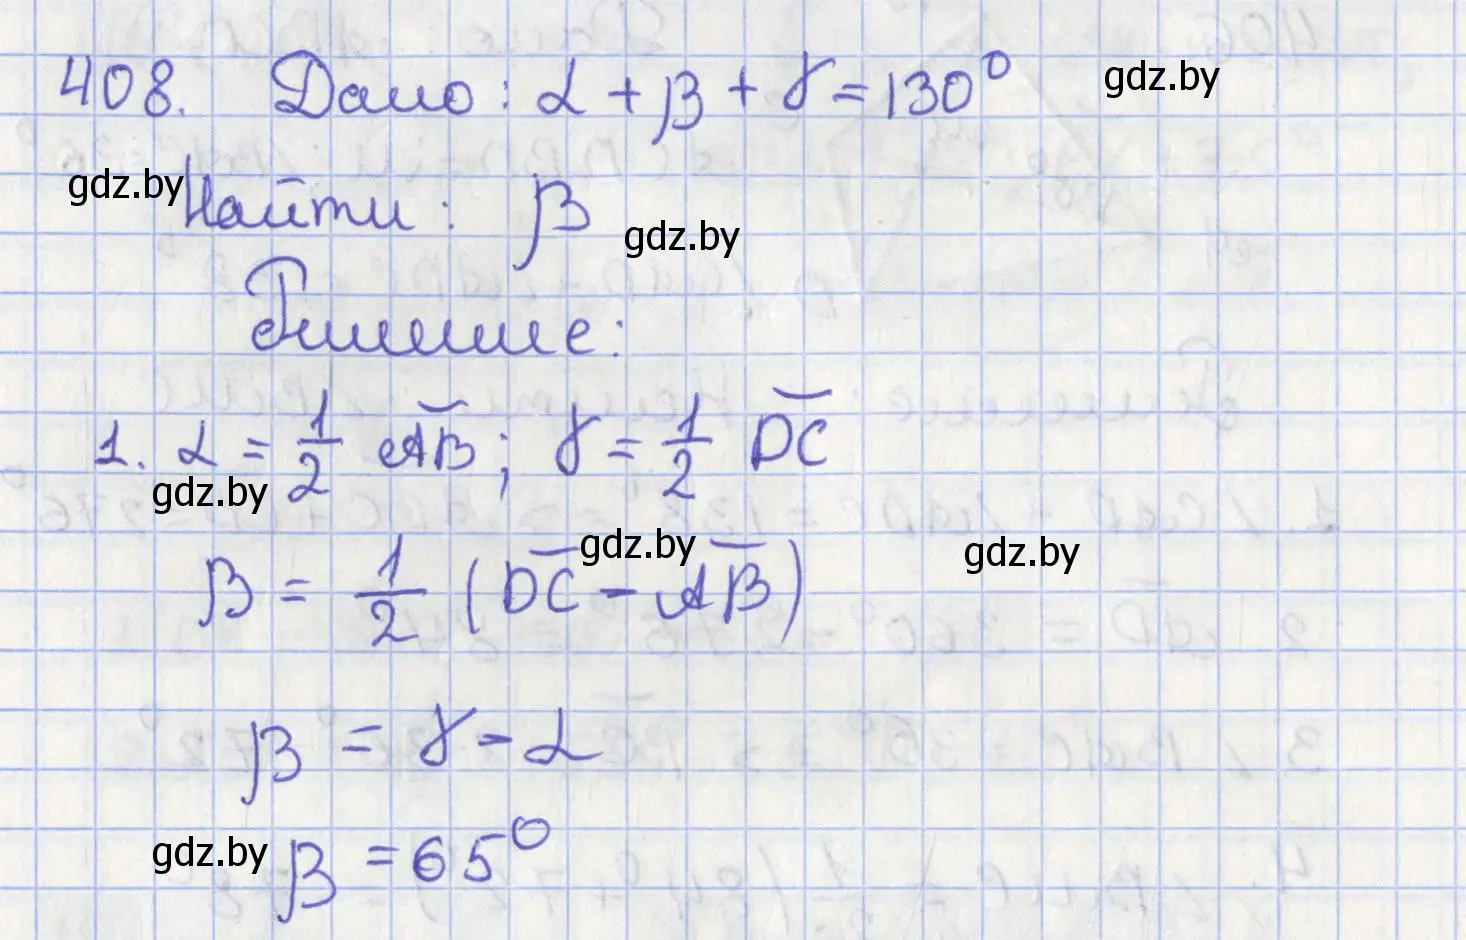 408. Дано: α + β + γ = 130°
gdz.by
gdz.by
Найти: β
gdz.by
Решение:
1. α = 1/2 ⌣AB; γ = 1/2 ⌣DC
gdz.by
gdz.by
gdz.by
β = 1/2 (⌣DC - ⌣AB)
β = γ - α
gdz.by
β = 65°